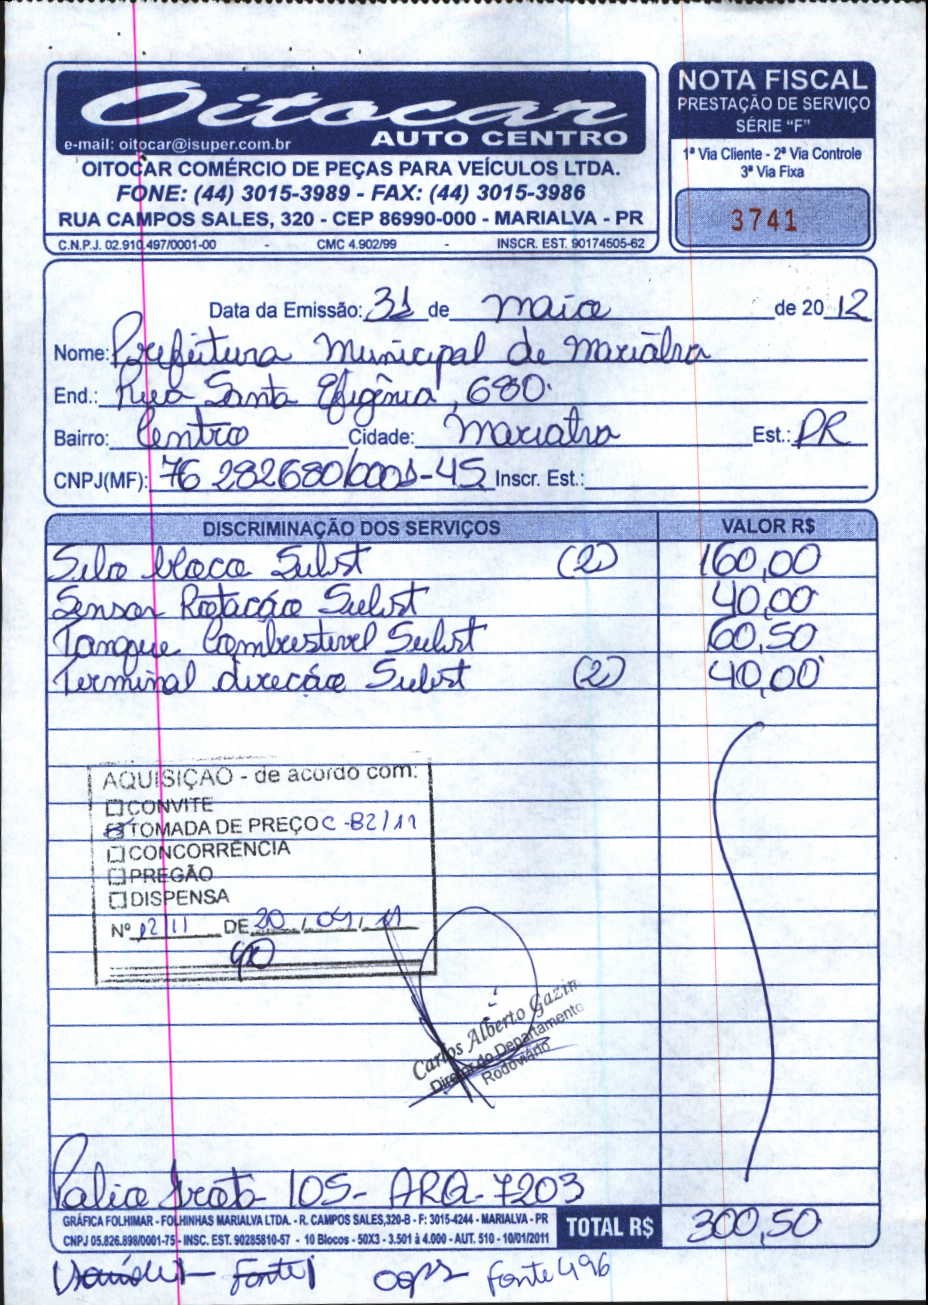 Oitocar
AUTO CENTRO
e-mail: oitocar@isuper.com.br
OITOCAR COMÉRCIO DE PEÇAS PARA VEÍCULOS LTDA.
FONE: (44) 3015-3989 - FAX: (44) 3015-3986
RUA CAMPOS SALES, 320 - CEP 86990-000 - MARIALVA - PR
C.N.P.J. 02.910.497/0001-00 - CMC 4.902/99 - INSCR. EST. 90174505-62
NOTA FISCAL
PRESTAÇÃO DE SERVIÇO
SÉRIE “F”
1ª Via Cliente - 2ª Via Controle
3ª Via Fixa
3741
Data da Emissão: 31 de Maio de 2012
Nome: Prefeitura Municipal de Marialva
End.: Rua Santa Efigênia, 680
Bairro: Centro Cidade: Marialva Est.: PR
CNPJ(MF): 76 282680/0001-45 Inscr. Est.:
DISCRIMINAÇÃO DOS SERVIÇOS VALOR R$
Silo bloco Subst (2) 160,00
Sensor Rotação Subst 40,00
Tanque Combustivel Subst 60,50
Terminal direção Subst (2) 40,00
AQUISIÇÃO - de acordo com:
CONVITE
TOMADA DE PREÇO C-82/11
CONCORRÊNCIA
PREGÃO
DISPENSA
Nº 12/11 DE 20/04/11
Carlos Alberto Gazin
Diretor do Departamento
Rodoviário
Palio frota 105- ARQ-7203
GRÁFICA FOLHIMAR - FOLHINHAS MARIALVA LTDA. - R. CAMPOS SALES,320-B - F: 3015-4244 - MARIALVA - PR
CNPJ 05.826.898/0001-75 - INSC. EST. 90285810-57 - 10 Blocos - 50X3 - 3.501 à 4.000 - AUT. 510 - 10/01/2011
TOTAL R$ 300,50
fonte 496